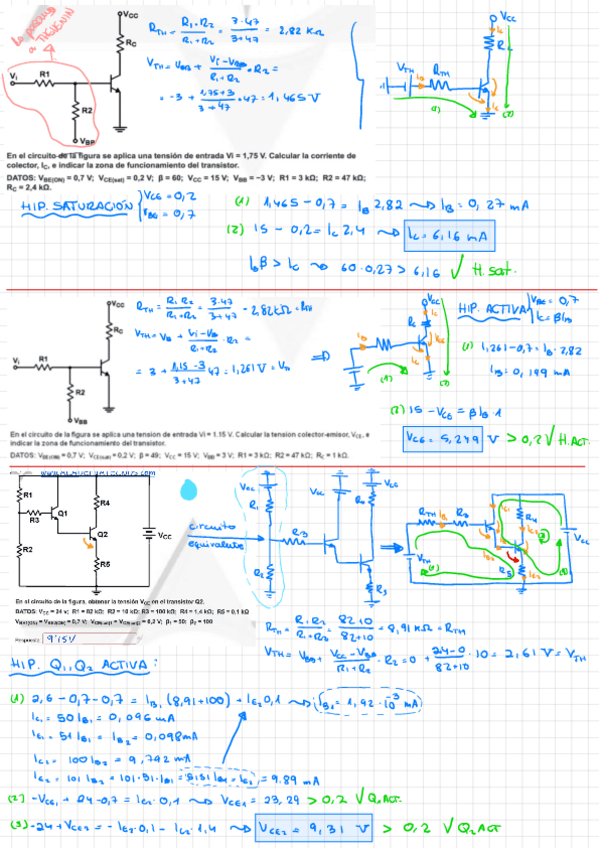 Lo pasamos a THEVENIN
VCC
RC
Vi
R1
R2
VBP
RTH = R1·R2 / R1+R2 = 3·47 / 3+47 = 2,82 KΩ
VTH = VBB + Vi-VBB / R1+R2 · R2 =
= -3 + 1,75+3 / 3+47 · 47 = 1,465 V
VCC
IC
VTH
IB
RTH
(1)
(2)
En el circuito de la figura se aplica una tensión de entrada Vi = 1,75 V. Calcular la corriente de
colector, IC, e indicar la zona de funcionamiento del transistor.
DATOS: VBE(ON) = 0,7 V; VCE(sat) = 0,2 V; β = 60; VCC = 15 V; VBB = −3 V; R1 = 3 kΩ; R2 = 47 kΩ;
RC = 2,4 kΩ.
HIP. SATURACIÓN
VCE = 0,2
VBE = 0,7
(1) 1,465 - 0,7 = IB 2,82 ⇝ IB = 0,27 mA
(2) 15 - 0,2 = IC 2,4 ⇝ IC = 6,16 mA
IB β > IC ⇝ 60·0,27 > 6,16 √ H.sat.
VCC
RC
Vi
R1
R2
VBB
RTH = R1·R2 / R1+R2 = 3·47 / 3+47 = 2,82 KΩ = RTH
VTH = VB + Vi-VB / R1+R2 · R2 =
= 3 + 1,15-3 / 3+47 · 47 = 1,261 V = VTH
VCC
IC
RC
IB
VCE
(1)
(2)
HIP. ACTIVA
VBE = 0,7
IC = βIB
(1) 1,261 - 0,7 = IB · 2,82
IB = 0,199 mA
(2) 15 - VCE = βIB·1
VCE = 5,249 V > 0,2 √ H.ACT.
En el circuito de la figura se aplica una tension de entrada Vi = 1.15 V. Calcular la tension colector-emisor, VCE, e
indicar la zona de funcionamiento del transistor.
DATOS: VBE(ON) = 0,7 V; VCE(sat) = 0,2 V; β = 49; VCC = 15 V; VBB = 3 V; R1 = 3 kΩ; R2 = 47 kΩ; RC = 1 kΩ.
R1
R3
Q1
R4
Q2
R2
R5
VCC
circuito equivalente
VCC
R1
R2
R3
VCC
VCC
RTH
IB
R3
VTH
R4
R5
VCC
(1)
En el circuito de la figura, obtener la tensión VCE en el transistor Q2.
DATOS: VCC = 24 V; R1 = 82 kΩ; R2 = 10 kΩ; R3 = 100 kΩ; R4 = 1,4 kΩ; R5 = 0,1 kΩ
β1 = 50; β2 = 100
RTH = R1·R2 / R1+R2 = 82·10 / 82+10 = 8,91 KΩ = RTH
VTH = VBB + VCC-VBB / R1+R2 · R2 = 0 + 24-0 / 82+10 · 10 = 2,61 V = VTH
HIP. Q1, Q2 ACTIVA:
(1) 2,6 - 0,7 - 0,7 = IB1 (8,91+100) + IE2 0,1 ⇝ IB1 = 1,92·10⁻³ mA
IC1 = 50 IB1 = 0,096 mA
IE1 = 51 IB1 = IB2 = 0,098 mA
IC2 = 100 IB2 = 9,792 mA
IE2 = 101 IB2 = 101·51·IB1 = 5151 IB1 = IE2 = 9.89 mA
(2) -VCE1 + 24 - 0,7 = IE2·0,1 ⇝ VCE1 = 23,29 > 0,2 √ Q1 ACT.
(3) -24 + VCE2 = -IE2·0,1 - IC2·1,4 ⇝ VCE2 = 9,31 V > 0,2 √ Q2 ACT